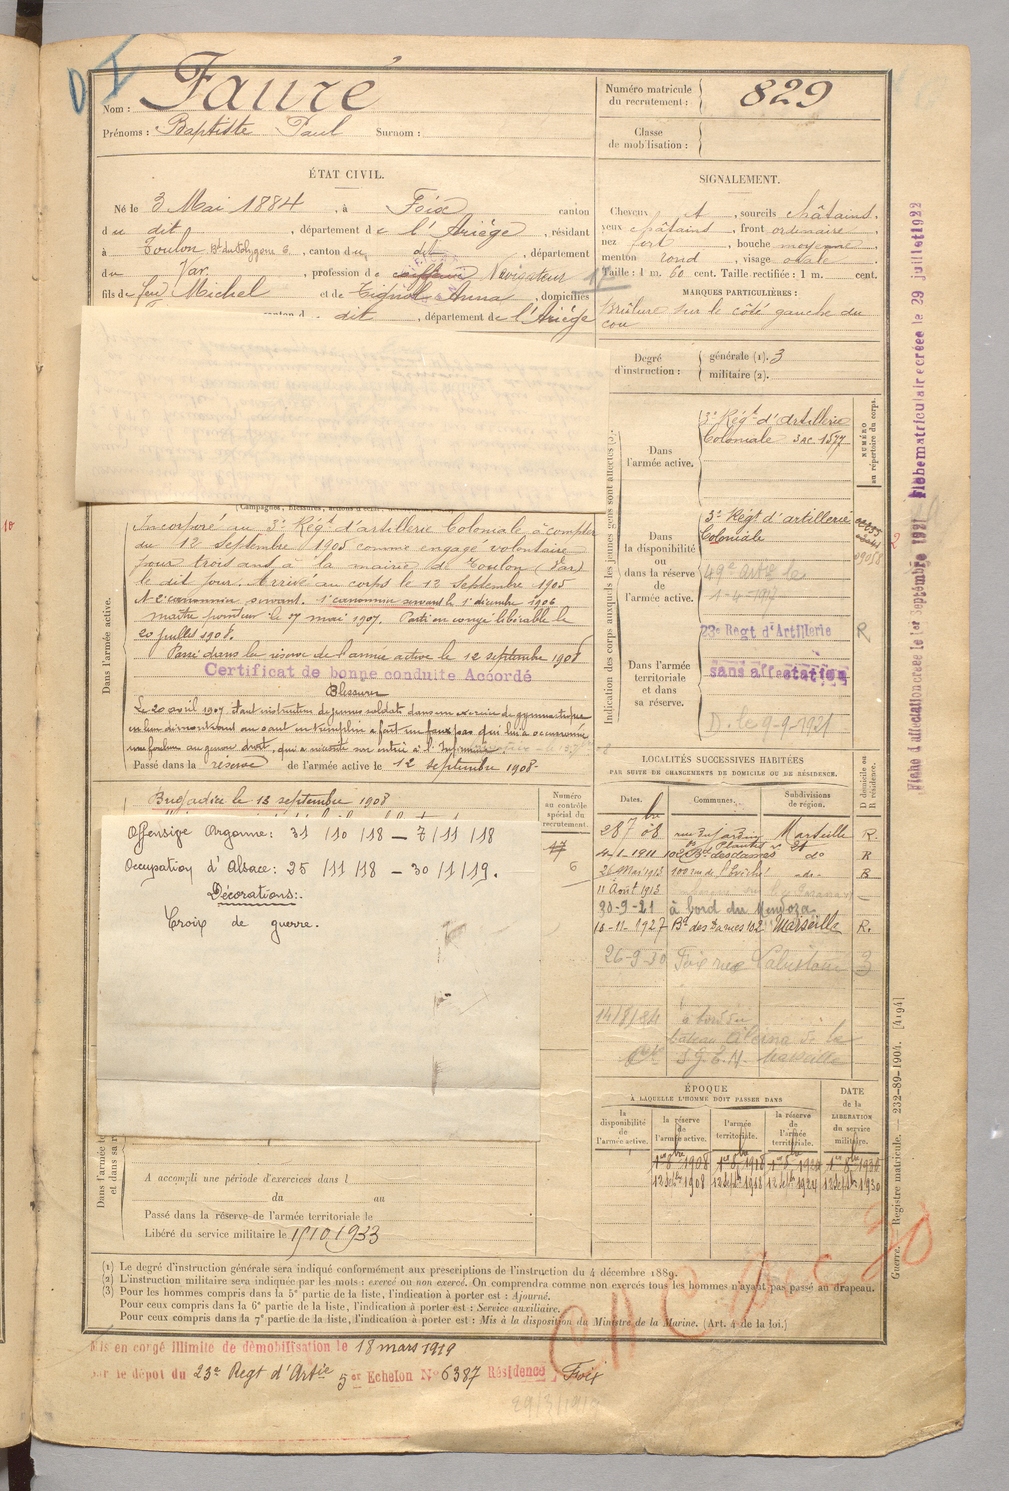 Nom : Fauré
Prénoms : Baptiste Paul Surnom :
Numéro matricule du recrutement : 829
Classe de mobilisation :
ÉTAT CIVIL.
Né le 3 Mai 1884, à Foix canton
du dit, département de l'Ariège, résidant
à Toulon Bd du Polygone 6, canton du dit département
du Var, profession de coiffeur Navigateur
fils de feu Michel et de Tignol Anna, domiciliés
canton d. dit, département de l'Ariège
SIGNALEMENT.
Cheveux ct, sourcils châtains,
yeux châtains, front ordinaire,
nez fort, bouche moyenne,
menton rond, visage ovale.
Taille : 1 m. 60 cent. Taille rectifiée : 1 m. cent.
MARQUES PARTICULIÈRES :
Brûlure sur le côté gauche du
cou
Degré d'instruction : générale (1). 3
militaire (2).
Indication des corps auxquels les jeunes gens sont affectés
NUMÉRO au répertoire du corps.
Dans l'armée active.
3e Régt d'Artillerie
Coloniale 3AC 1577
Dans la disponibilité ou dans la réserve de l'armée active.
3e Régt d'artillerie
Coloniale
49e Artie le
1-4-1917
Dans l'armée territoriale et dans sa réserve.
23e Regt d'Artillerie R
sans affectation
D. le 9-9-1921
Dans l'armée active.
Incorporé au 3e Régt d'artillerie Coloniale à compter
du 12 Septembre 1905 comme engagé volontaire
pour trois ans à la mairie de Toulon (Var)
le dit jour. Arrivé au corps le 12 Septembre 1905
et 2e canonnier servant. 1er canonnier servant le 1er décembre 1906
maître pointeur le 17 mai 1907. Parti en congé libérable le
20 juillet 1908.
Passé dans la réserve de l'armée active le 12 septembre 1908
Certificat de bonne conduite Accordé
Blessures
Le 20 avril 1907 étant instructeur de jeunes soldats dans un exercice de gymnastique
en leur démontrant un saut au tremplin a fait un faux pas qui lui a occasionné
une foulure au genou droit, qui a nécessité son entrée à l'Infirmerie
Passé dans la réserve de l'armée active le 12 septembre 1908-
Brigadier le 12 septembre 1908
Numéro au contrôle spécial du recrutement.
6
Offensive Argonne : 31/10/18 — 7/11/18
Occupation d'Alsace : 25/11/18 — 30/1/19.
Décorations :
Croix de guerre.
LOCALITÉS SUCCESSIVES HABITÉES
PAR SUITE DE CHANGEMENTS DE DOMICILE OU DE RÉSIDENCE.
Dates. Communes. Subdivisions de région. D domicile ou R résidence.
28 7bre 08 rue du Jardin des Plantes Marseille R.
4-1-1911 102 Bd des dames do R
26 Mai 1913 100 rue de l'Évêché -do- R
11 Août 1913
30-9-21 à bord du Mendoza
13-11-1927 Bd des Dames 102 Marseille R.
26-9-30 Foix rue Labistour 3
14/8/34 à bord du
bateau
S.G.T.M. Marseille
ÉPOQUE
À LAQUELLE L'HOMME DOIT PASSER DANS
la disponibilité de l'armée active. la réserve de l'armée active. l'armée territoriale. la réserve de l'armée territoriale. DATE de la LIBÉRATION du service militaire.
1er 8bre 1908 1er 8bre 1918 1er 8bre 1924 1er 8bre 1930
12 septbre 1908 12 septbre 1918 12 septbre 1924 12 septbre 1930
A accompli une période d'exercices dans l
du au
Passé dans la réserve de l'armée territoriale le
Libéré du service militaire le 15 10 1933
(1) Le degré d'instruction générale sera indiqué conformément aux prescriptions de l'instruction du 4 décembre 1889.
(2) L'instruction militaire sera indiquée par les mots : exercé ou non exercé. On comprendra comme non exercés tous les hommes n'ayant pas passé au drapeau.
(3) Pour les hommes compris dans la 5e partie de la liste, l'indication à porter est : Ajourné.
Pour ceux compris dans la 6e partie de la liste, l'indication à porter est : Service auxiliaire.
Pour ceux compris dans la 7e partie de la liste, l'indication à porter est : Mis à la disposition du Ministre de la Marine. (Art. 4 de la loi.)
Mis en congé illimité de démobilisation le 18 mars 1919
par le dépot du 23e Regt d'Artie 5er Echelon No 6387 Résidence Foix
Guerre. Registre matricule. — 232-89-1904. [4194]
Fiche d'affectation créée le 1er Septembre 1921 Fiche matriculaire créée le 29 juillet 1922